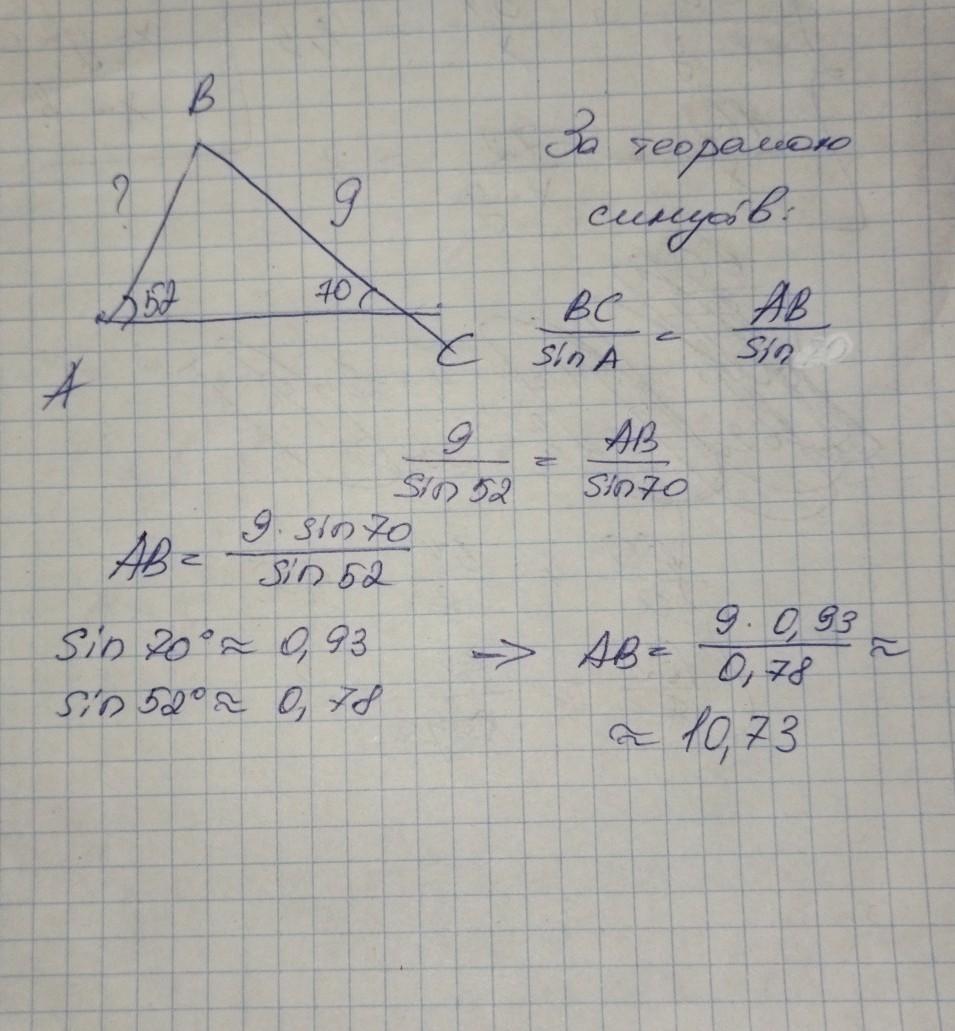 B
?
9
52
70
A
C
За теорамою
синусів:
BC/sin A = AB/sin
9/sin 52 = AB/sin70
AB = 9 · sin70/sin 52
sin 70° ≈ 0,93
sin 52° ≈ 0,78
→ AB = 9 · 0,93/0,78 ≈
≈ 10,73